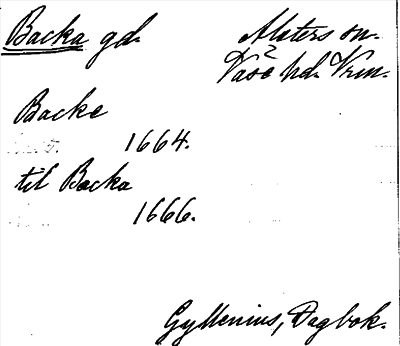 Backa gd. Alsters sn.
Väse hd. Vrm.
2
Backe
1664.
til Backa
1666.
Gyllenius, Dagbok.